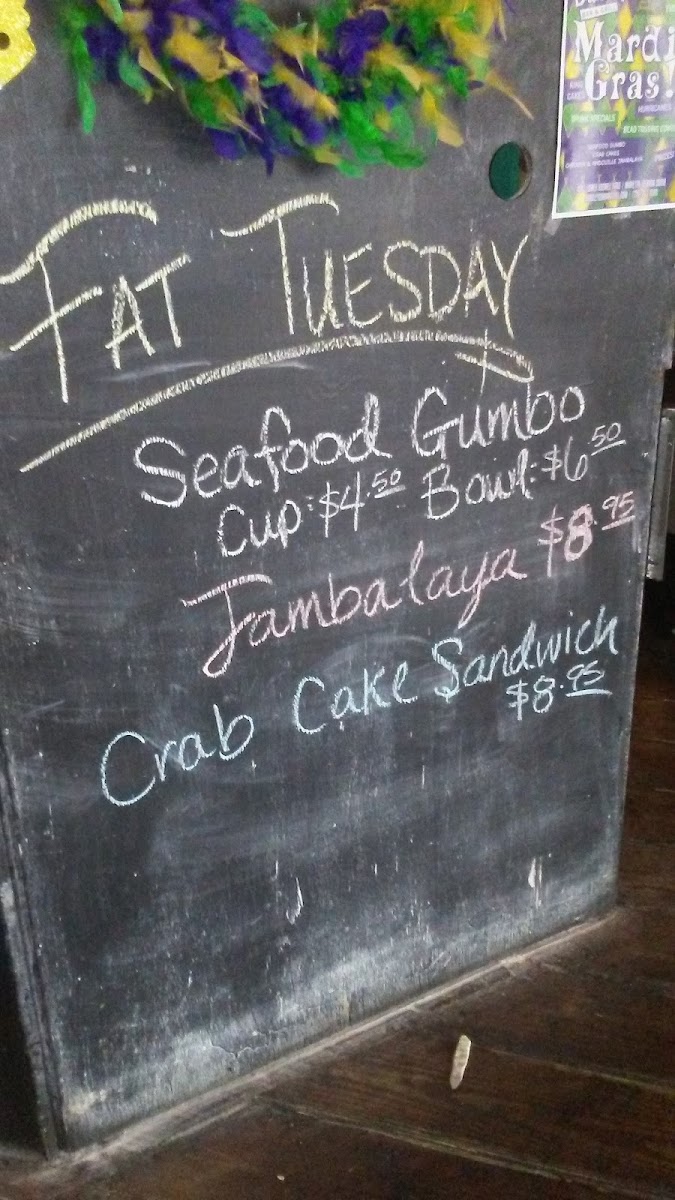 Mardi
Gras!
FAT TUESDAY
Seafood Gumbo
Cup: $4.50 Bowl: $6.50
Jambalaya $8.95
Crab Cake Sandwich
$8.95